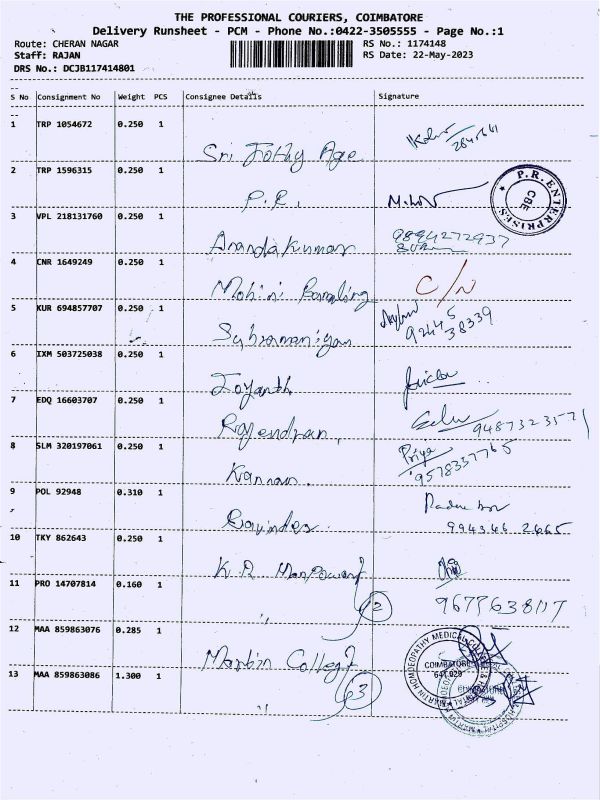 THE PROFESSIONAL COURIERS, COIMBATORE
Delivery Runsheet - PCM - Phone No.:0422-3505555 - Page No.:1
Route: CHERAN NAGAR RS No.: 1174148
Staff: RAJAN RS Date: 22-May-2023
DRS No.: DCJB117414801
S No Consignment No Weight PCS Consignee Details Signature
1 TRP 1054672 0.250 1 Sri Jothy Age
2 TRP 1596315 0.250 1 P.R.
P.R. ENTERPRISES CBE
3 VPL 218131760 0.250 1 Anandakumar 9894272937
4 CNR 1649249 0.250 1 Mohini C/N
5 KUR 694857707 0.250 1 Subramaniyan 92445 38339
6 IXM 503725038 0.250 1 Jayanth
7 EDQ 16603707 0.250 1 Rajendran, Selvi 9487323571
8 SLM 320197061 0.250 1 Kannan Priya 9578357765
9 POL 92948 0.310 1 Ravinder 994346 2665
10 TKY 862643 0.250 1 K.R Manpower
11 PRO 14707814 0.160 1 " 2
12 MAA 859863076 0.285 1 Martin College
MARTIN HOMOEOPATHY MEDICAL COLLEGE & HOSPITAL COIMBATORE 641 029
13 MAA 859863086 1.300 1 " 3